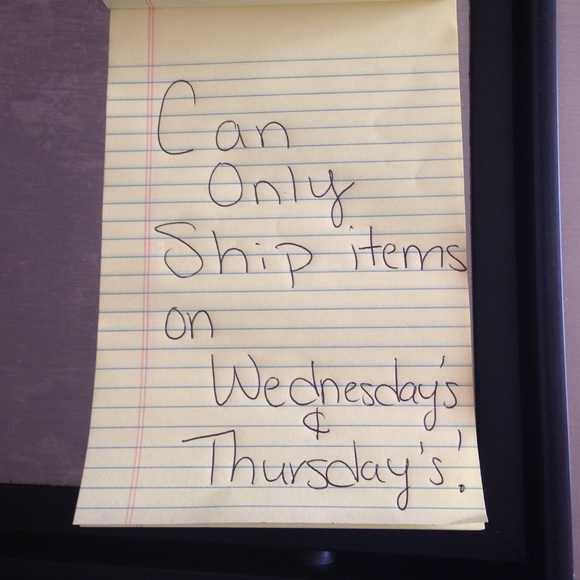 Can
Only
Ship items
on
Wednesday's
&
Thursday's!